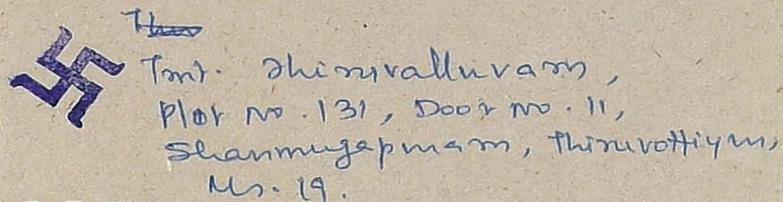 Tmt. Thiruvalluvam,
Plot No. 131, Door No. 11,
Shanmugapuram, Thiruvottiyur,
Ms. 19.